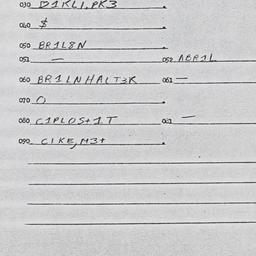 030 D1KLI,PK3
040 $
050 BR1L8N
051 — 052 ABR1L
060 BR1LNHALT3R 061 —
070 O
080 C1PLOS+1T —
090 CIKE,M3+